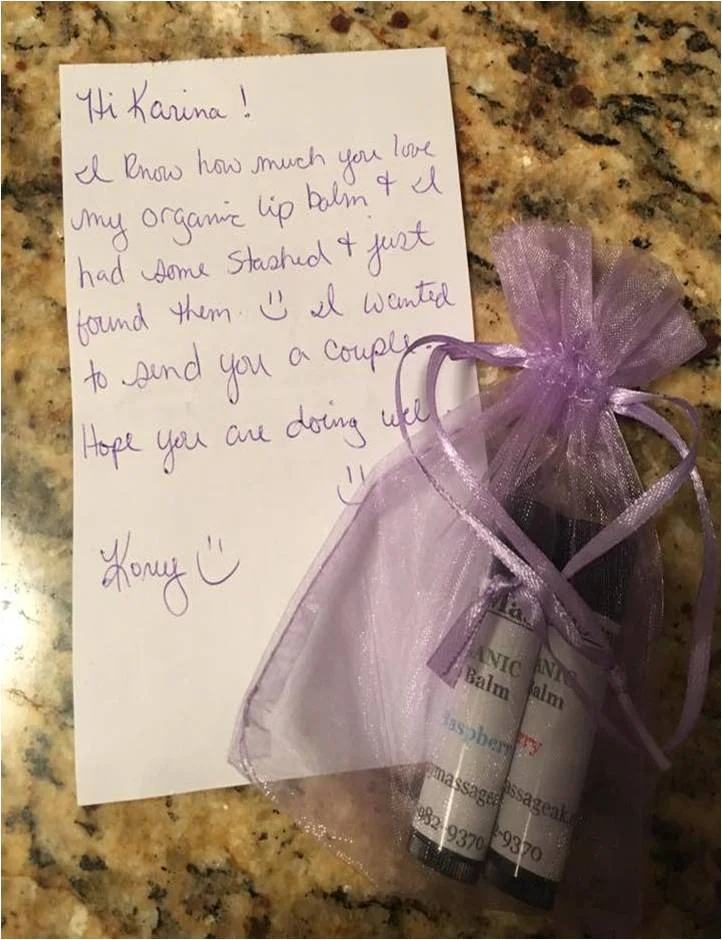 Hi Karina!
I know how much you love
my organic lip balm & I
had some stashed & just
found them. I wanted
to send you a couple.
Hope you are doing well.
Korey
Mas
ANIC
Balm
aspberr
massage
982-9370
ANIC
alm
rry
assageak.
-9370